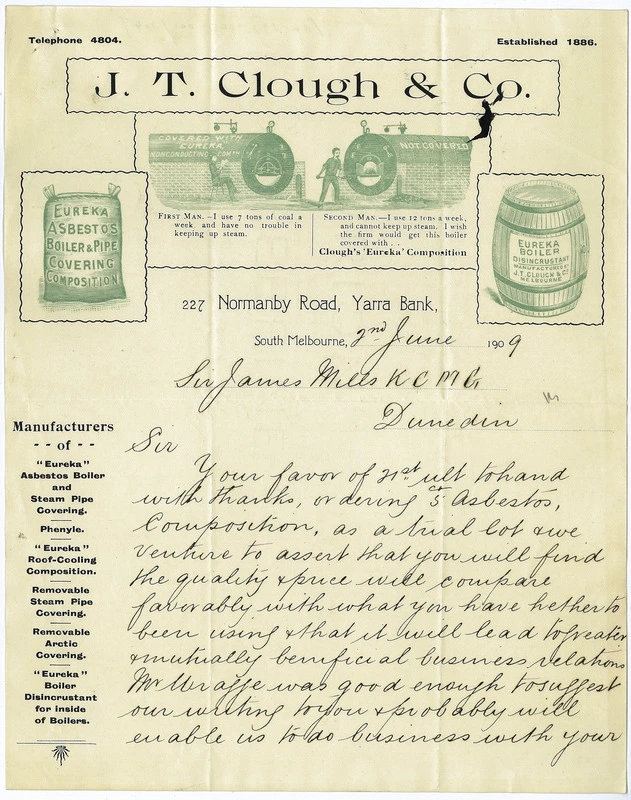 Telephone 4804.
Established 1886.
J. T. Clough & Co.
COVERED WITH
EUREKA
NONCONDUCTING COMTN
NOT COVERED
FIRST MAN.—I use 7 tons of coal a
week and have no trouble in
keeping up steam.
SECOND MAN.—I use 12 tons a week,
and cannot keep up steam. I wish
the firm would get this boiler
covered with . .
Clough's 'Eureka' Composition
EUREKA
ASBESTOS
BOILER & PIPE
COVERING
COMPOSITION
EUREKA
BOILER
DISINCRUSTANT
MANUFACTURED BY
J.T. CLOUGH & CO
MELBOURNE
227 Normanby Road, Yarra Bank,
South Melbourne, 2nd June 1909
Sir James Mills K C M G
Dunedin
Manufacturers
- - of - -
"Eureka"
Asbestos Boiler
and
Steam Pipe
Covering.
Phenyle.
"Eureka"
Roof-Cooling
Composition.
Removable
Steam Pipe
Covering.
Removable
Arctic
Covering.
"Eureka"
Boiler
Disincrustant
for inside
of Boilers.
Sir
Your favor of 21st ult to hand
with thanks, ordering 5 ct Asbestos,
Composition, as a trial lot & we
venture to assert that you will find
the quality & price will compare
favorably with what you have hetherto
been using & that it will lead to greater
& mutually beneficial business relations
Mr was good enough to suggest
our writing to you & probably will
enable us to do business with your